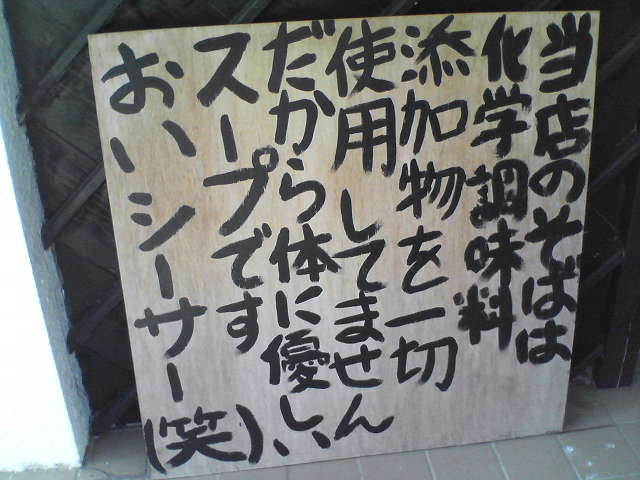 当店のそばは
化学調味料
添加物を一切
使用してません
だから体に優しい、
スープです
おいシーサー(笑)